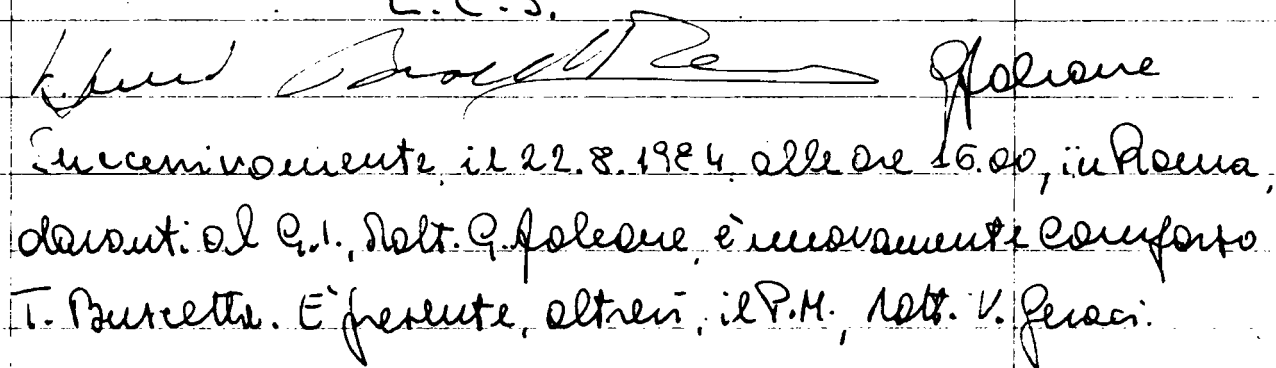 L.C.S.
GFalcone
Successivamente, il 22.8.1984, alle ore 16.00, in Roma,
davanti al G.I., Dott. G. Falcone, è nuovamente comparso
T. Buscetta. E' presente, altresì, il P.M., Dott. V. Geraci.